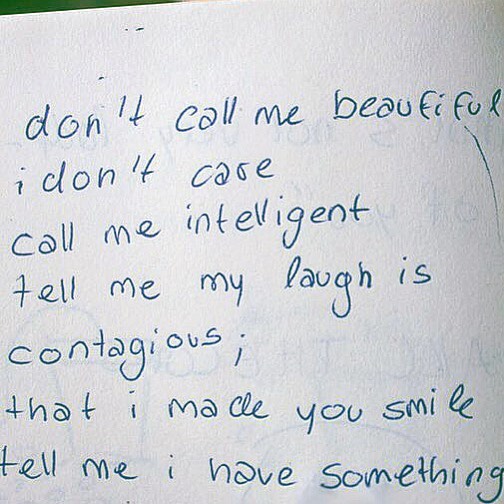 don't call me beautiful
i don't care
call me intelligent
tell me my laugh is
contagious;
that i made you smile
tell me i have something